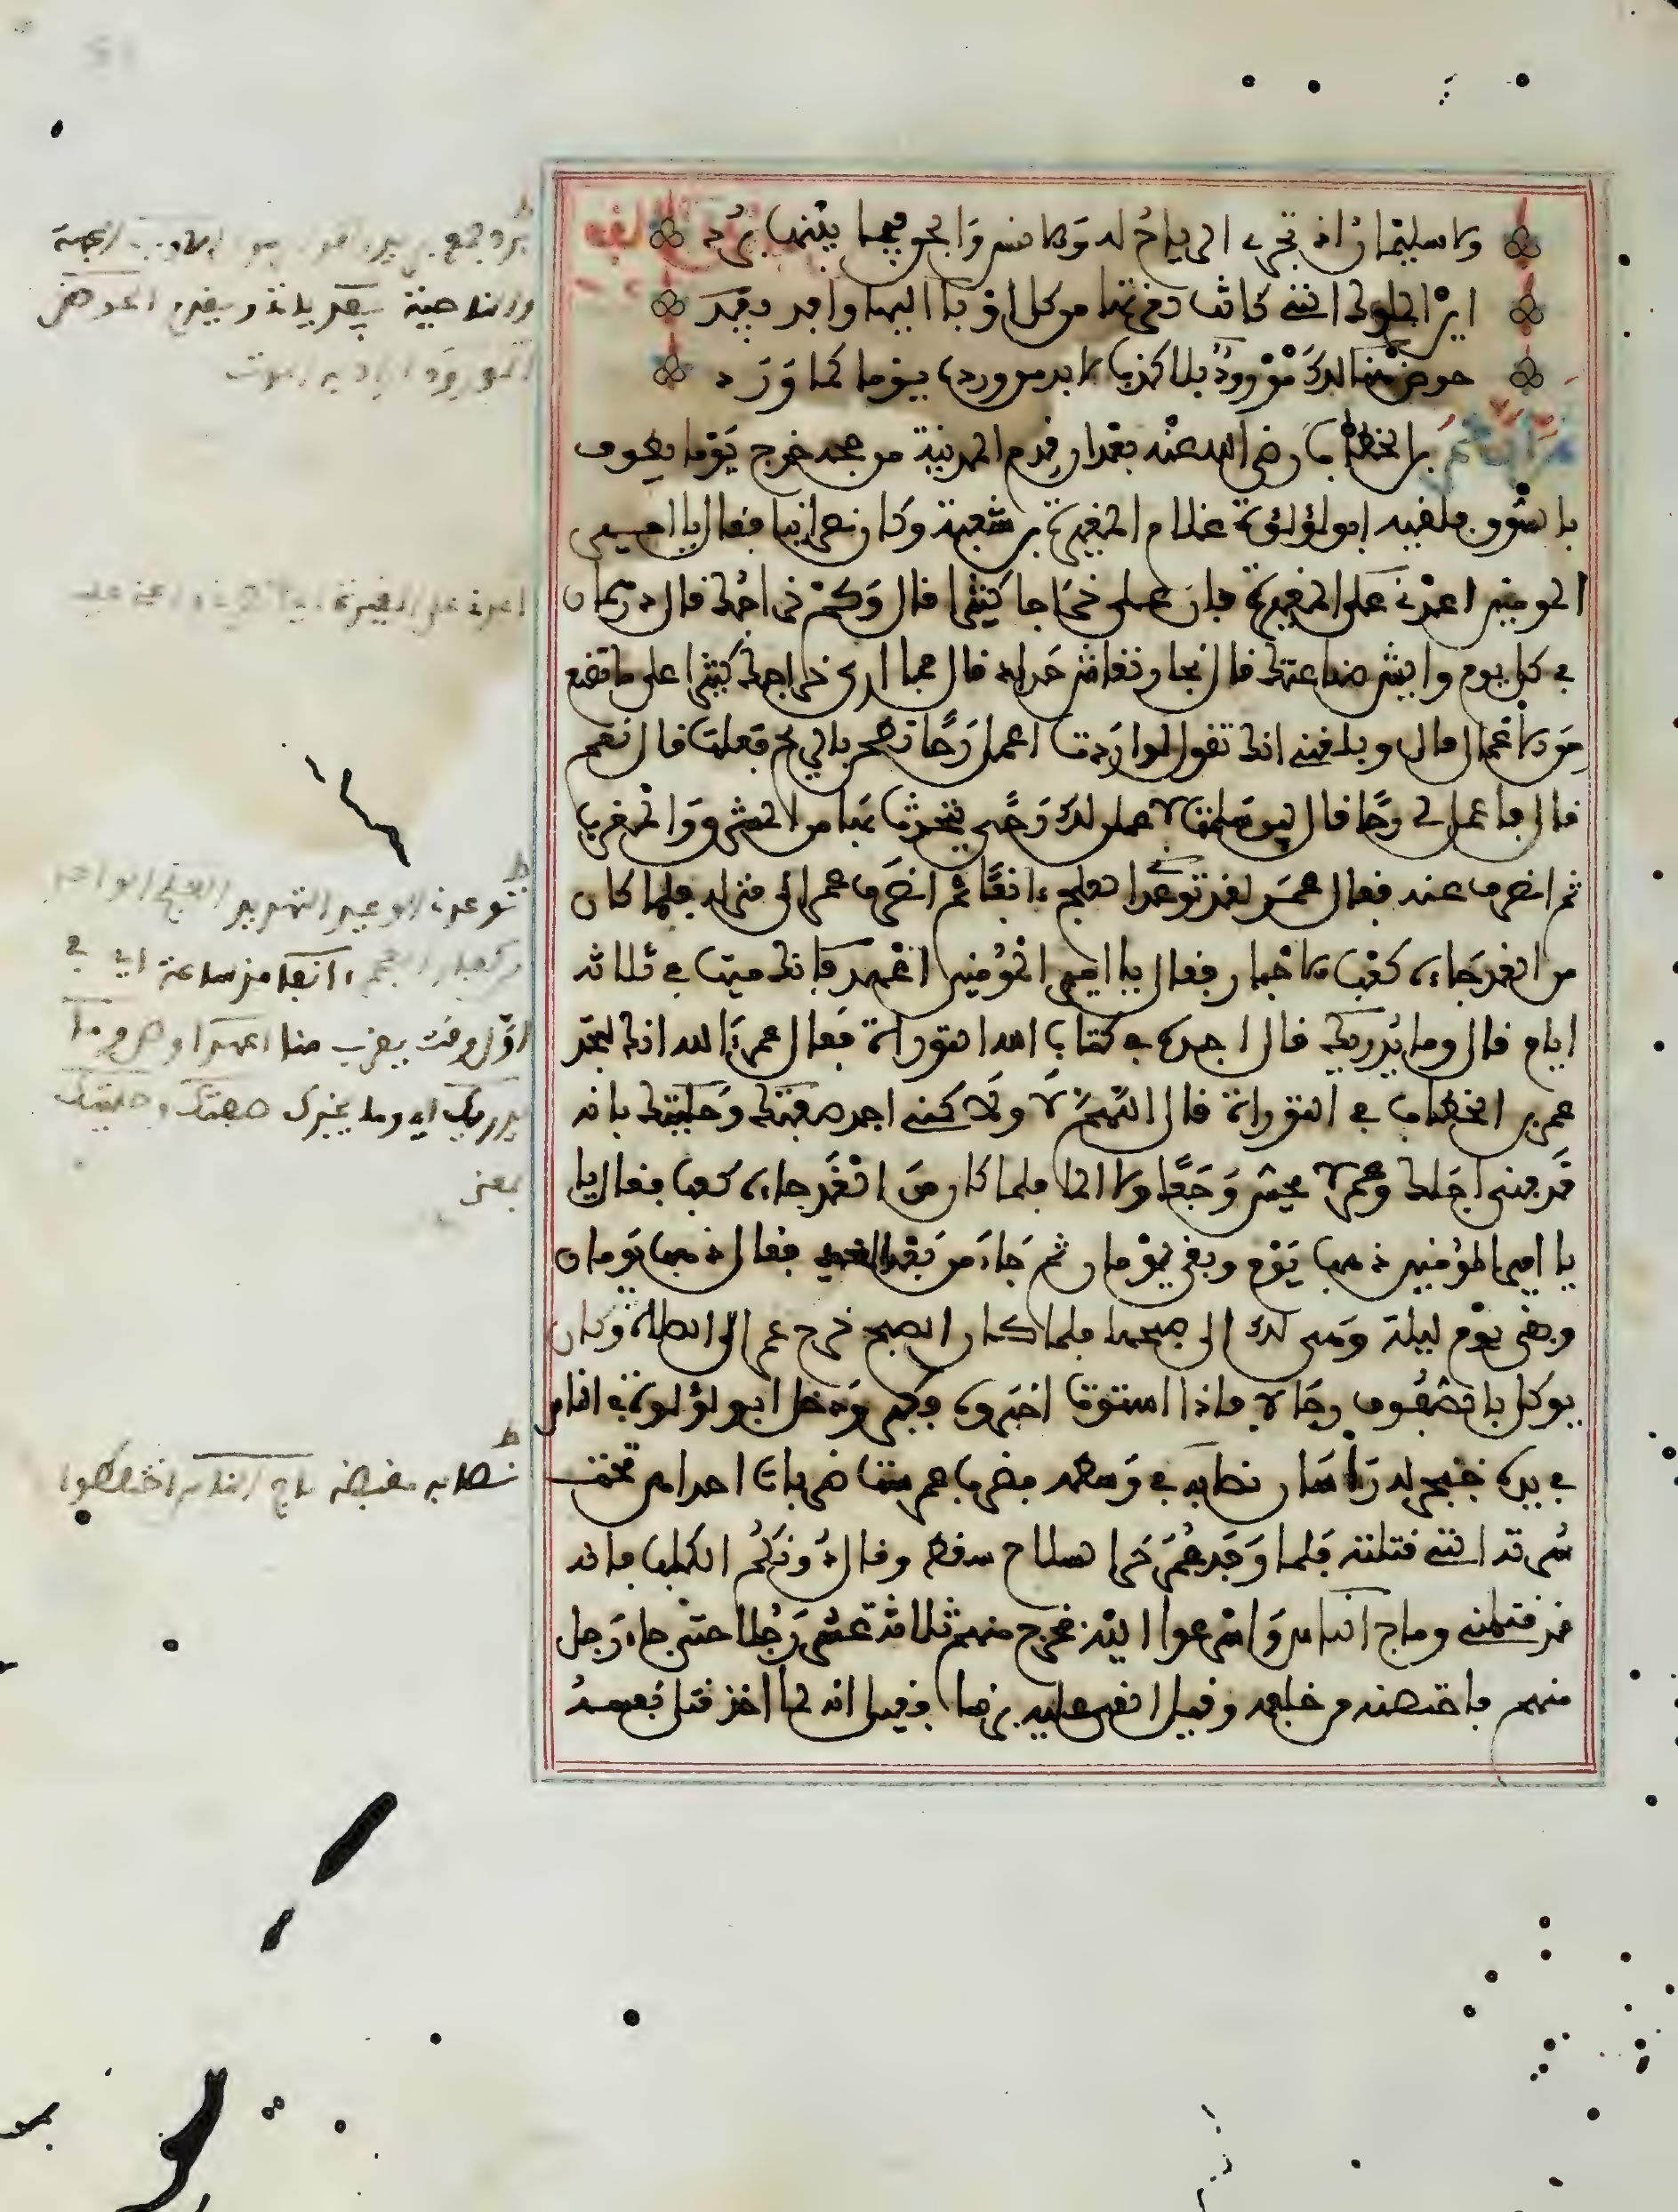 ولا سليمان اذ تجري الرياح له والانس والجن فيما بينها برد
اين الملوك التي كانت لعزتها من كل اوب اليها وافد يفد
حوض هنالك مورود بلا كذب لا بد من ورده يوما كما ورد
بن الخطاب رضي الله عنه بعد ان قدم المدينة من حجه خرج يوما يطوف
بالسوق فلقيه ابو لؤلؤة غلام المغيرة بن شعبة وكان نصرانيا فقال يا امير
المومنين اعدني على المغيرة فان علي خراجا كثيرا قال وكم خراجك قال درهمان
في كل يوم وايش صناعتك قال نجار نقاش حداد قال فما ارى خراجك كثيرا على ما تصنع
من الاعمال قال وبلغني انك تقول لو اردت اعمل رحا تطحن بالريح فعلت قال نعم
قال فاعمل لي رحا قال لين سلمت لاعملن لك رحى يتحدث بها من المشرق والمغرب
ثم انصرف عنه فقال عمر لقد توعدني العلج ءانفا ثم انصرف عمر الى منزله فلما كان
من الغد جاءه كعب الاحبار فقال يا امير المؤمنين اعهد فانك ميت في ثلاثة
ايام قال وما يدريك قال اجده في كتاب الله التوراة فقال عمر ءالله انك لتجد
عمر بن الخطاب في التوراة قال اللهم لا ولاكني اجد صفتك وحليتك بانه
قد فنى اجلك وعمر لا يحس وجعا ولا الما فلما كان من الغد جاءه كعب فقال يا
يا امير المؤمنين ذهب يوم وبقي يومان ثم جاء من بعد الغد فقال ذهب يومان
وبقي يوم وليلة وهي لك الى صبحها فلما كان الصبح خرج عمر الى الصلاة وكان
يوكل بالصفوف رجالا فاذا استوت اخبروه فكبر ودخل ابو لؤلوة في الناس
في يده خنجر له راسان نصابه في وسطه فضرب عمر ست ضربات احداهن تحت
سرته التي قتلته فلما وجد عمر حر السلاح سقط وقال دونكم الكلب فانه
قد قتلني وماج الناس واسرعوا اليه فجرح منهم ثلاثة عشر رجلا حتى جاء رجل
منهم فاحتضنه من خلفه وقيل القى عليه برنسا وقيل انه لما اخذ قتل نفسه
والناحية
اعدني على المغيرة
توعدني الوعيد التهديد العلج
ءانفا منذ ساعة اي في
اول وقت يقرب منا اعهد اوص وما
يدريك اي وما يخبرك صفتك وحليتك
بمعنى
نصابه مقبضه ماج الناس اختلطوا